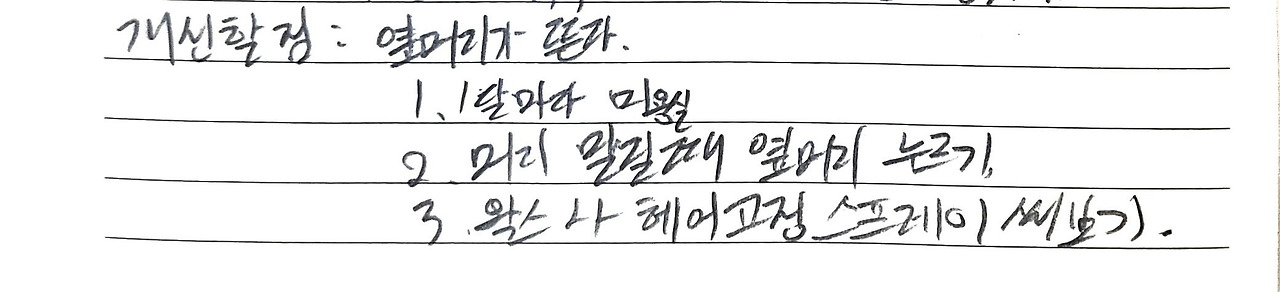 개선할점 : 옆머리가 뜬다.
1. 1달마다 미용실
2. 머리 말릴때 옆머리 누르기.
3. 왁스나 헤어고정스프레이 써보기.